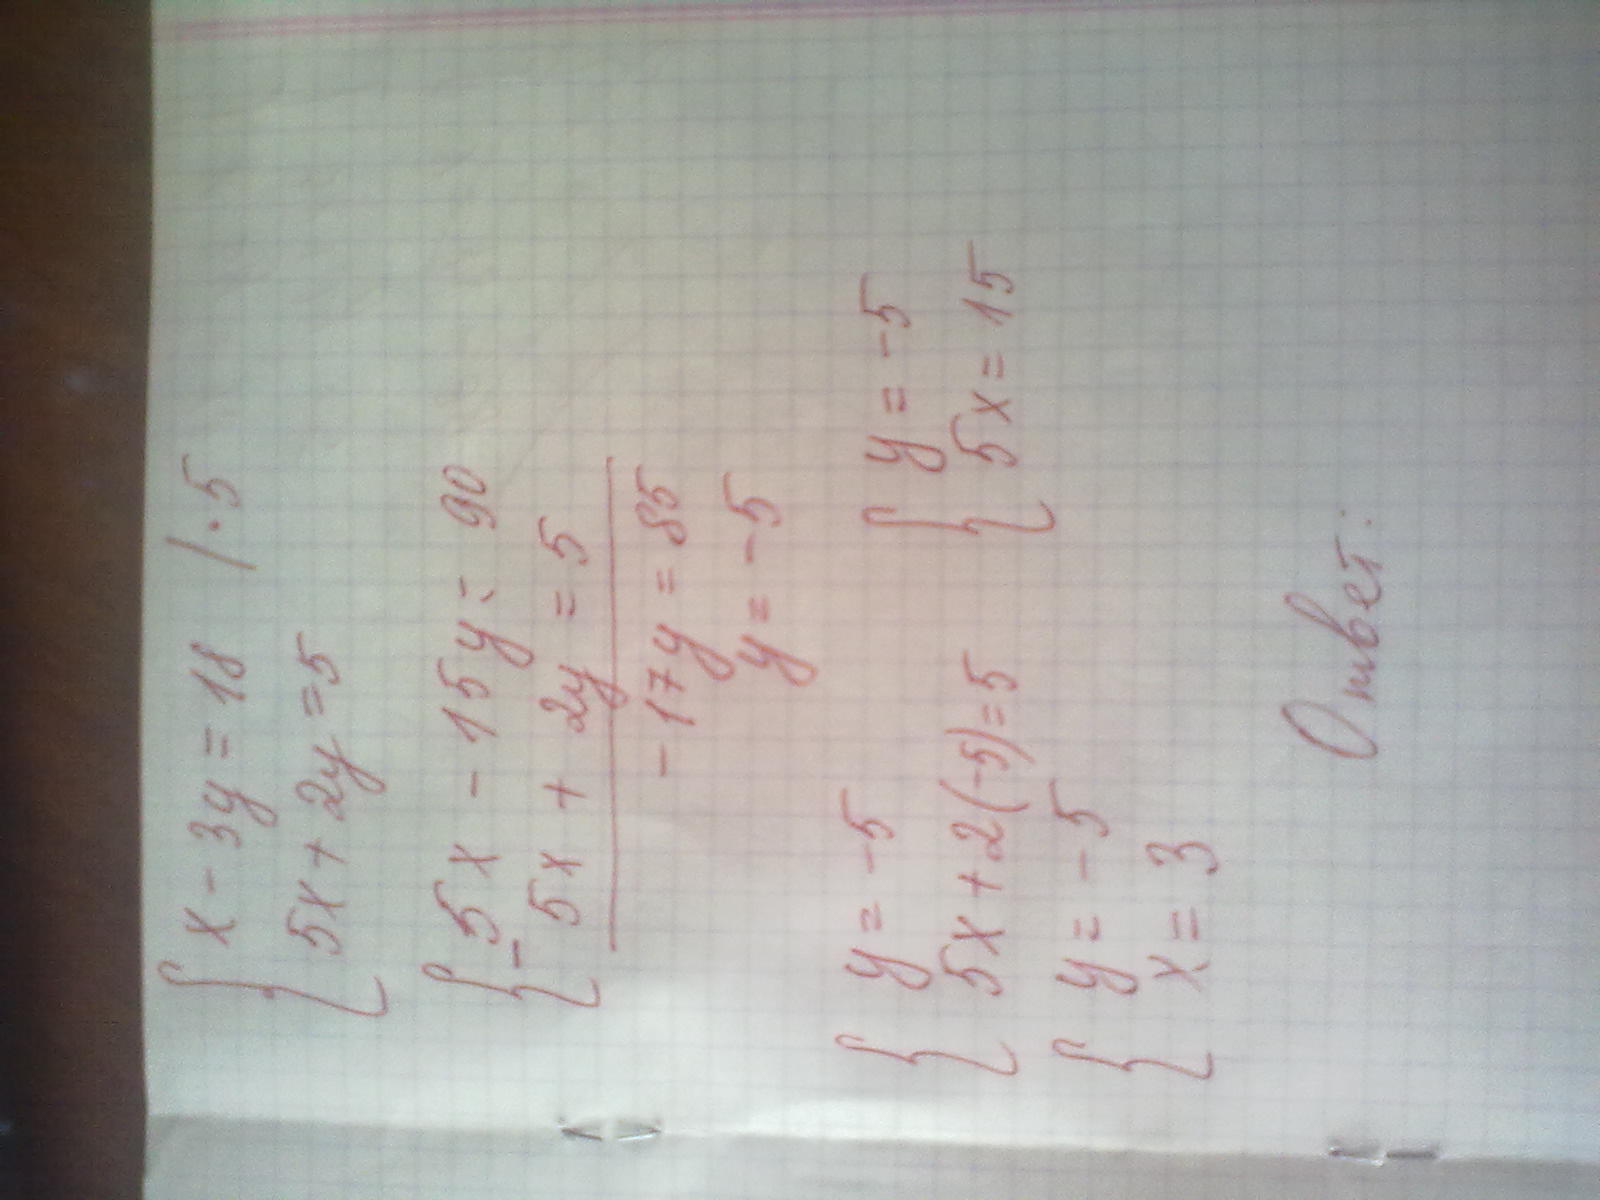 { x - 3y = 18 / · 5
5x + 2y = 5
{ 5x - 15y = 90
- 5x + 2y = 5
-17y = 85
y = -5
{ y = -5
5x + 2(-5) = 5
{ y = -5
5x = 15
{ y = -5
x = 3
Ответ: